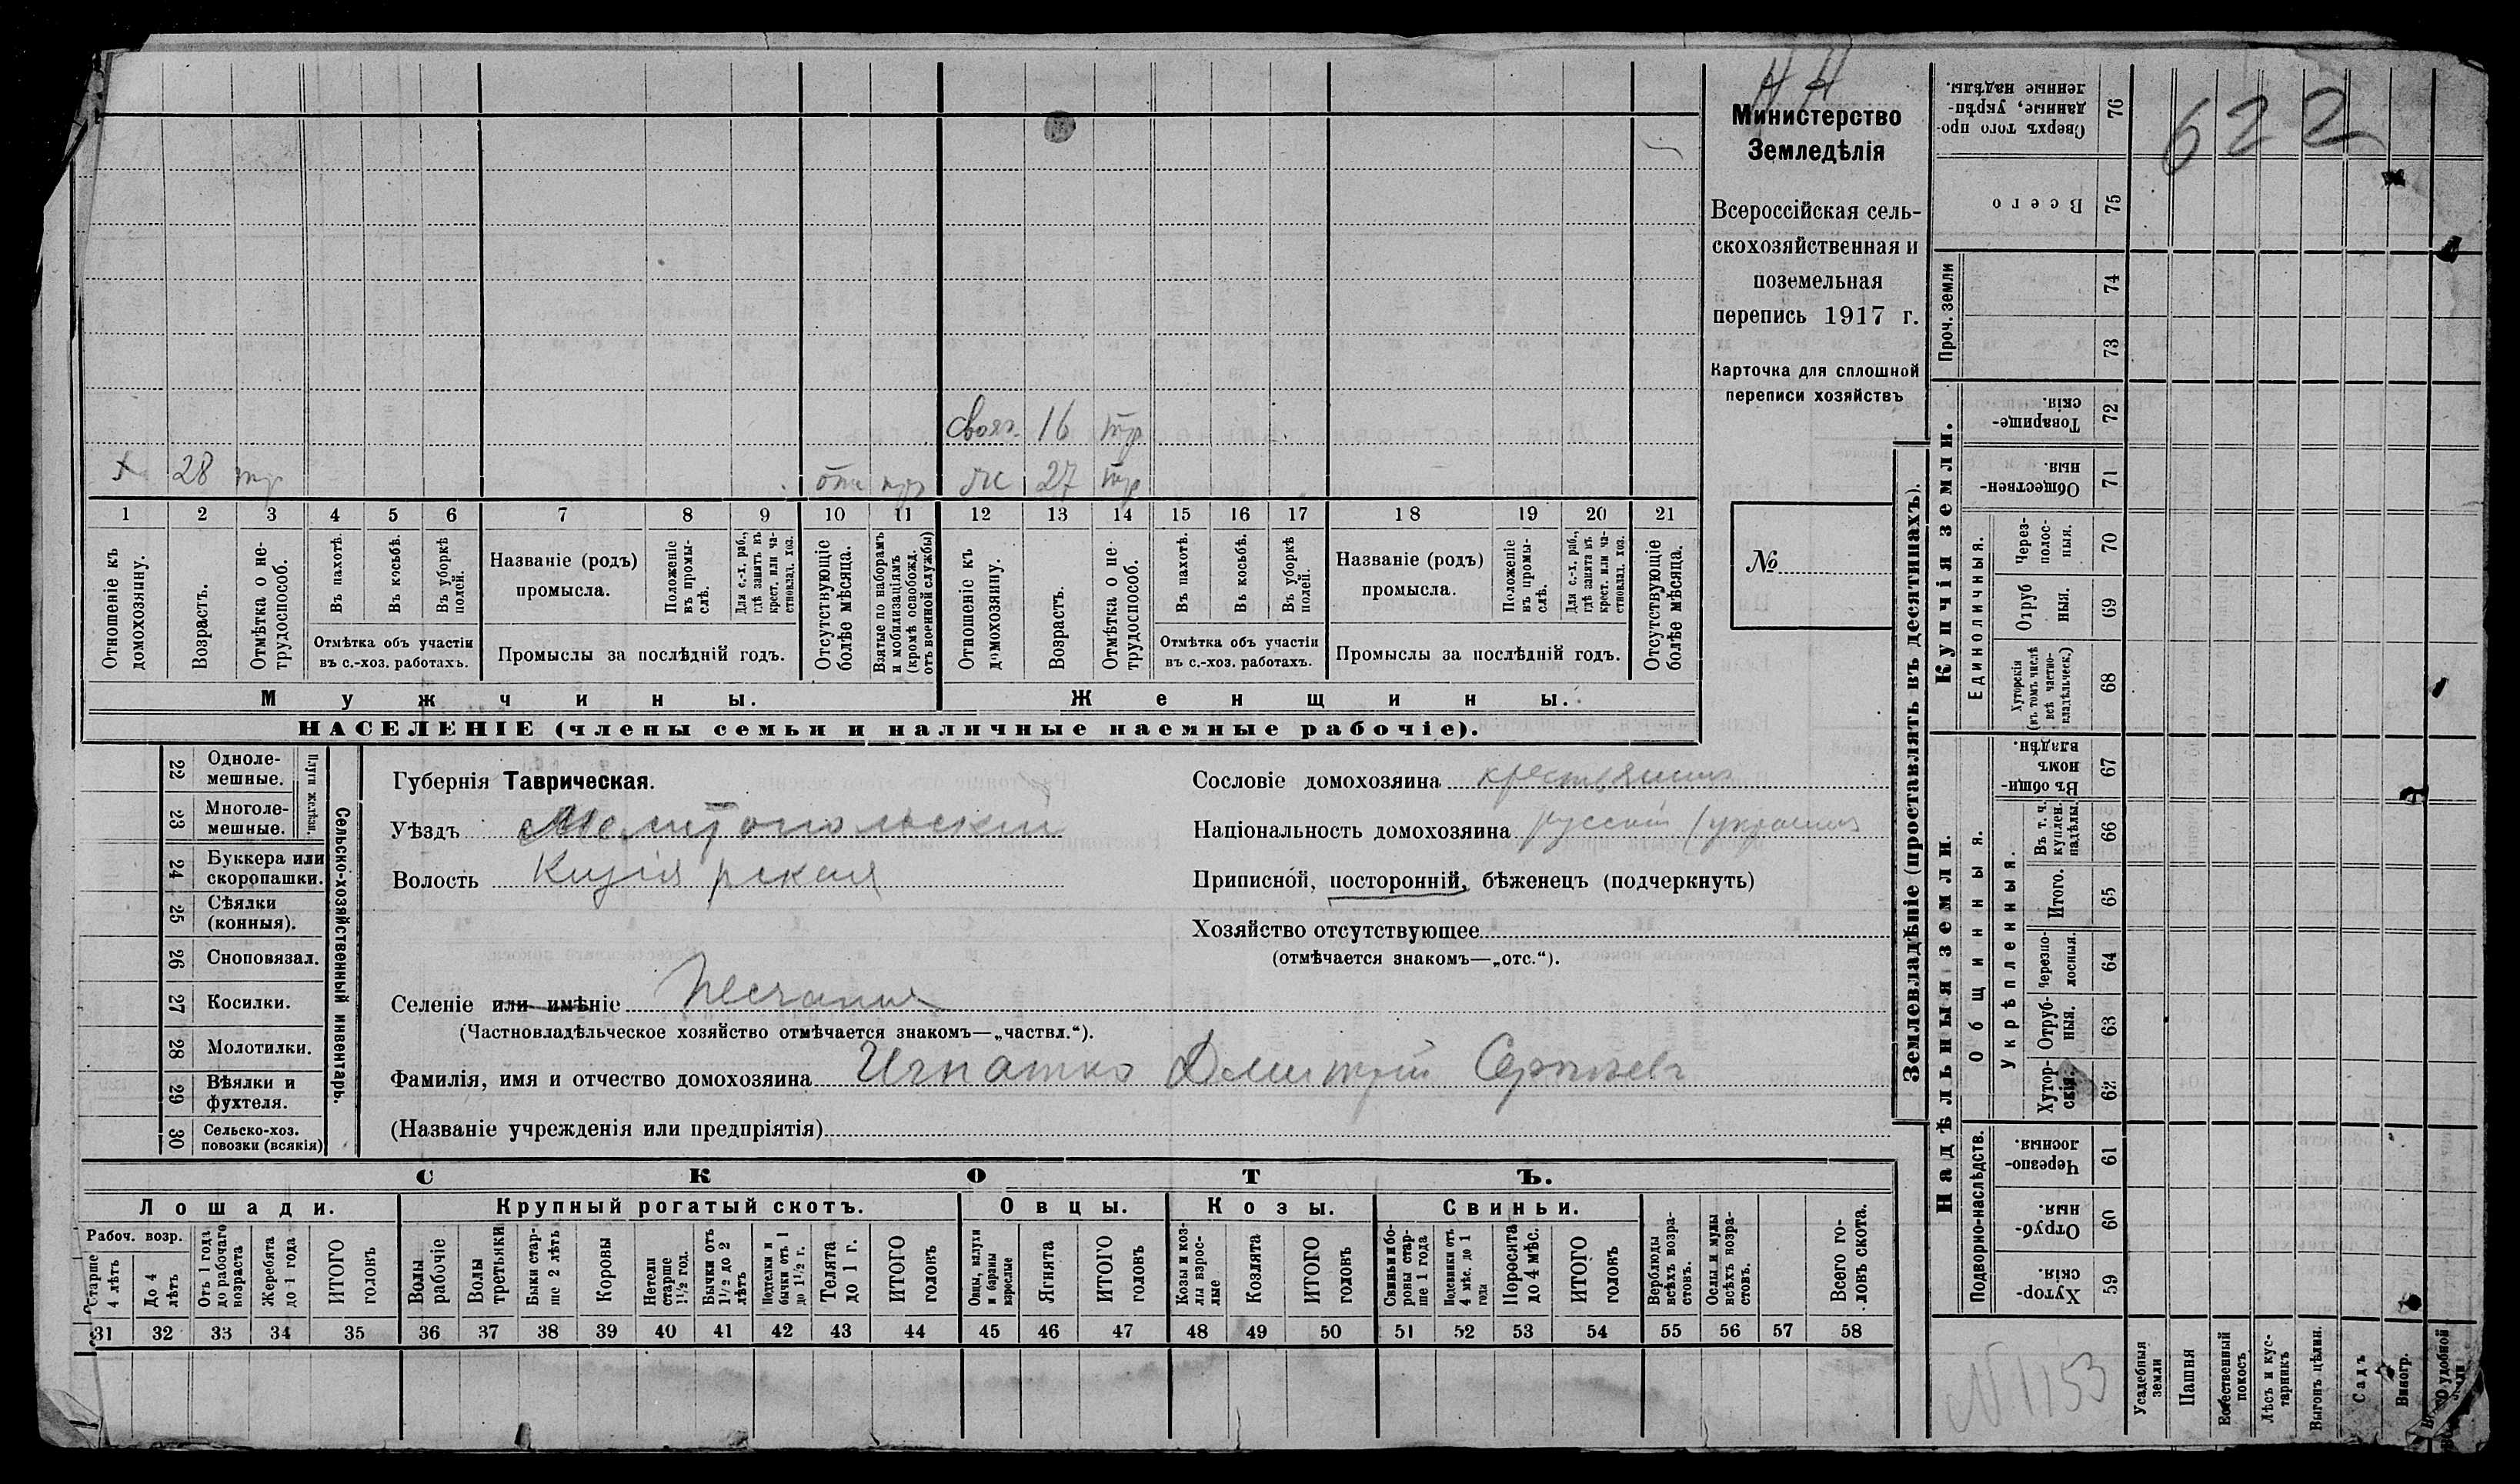 НН
Министерство
Земледѣлія
Всероссійская сель-
скохозяйственная и
поземельная
перепись 1917 г.
Карточка для сплошной
переписи хозяйствъ
№
622
свояч. 16 тр
х 28 тр
отс
жс 27 тр
1 2 3 4 5 6 7 8 9 10 11 12 13 14 15 16 17 18 19 20 21
Отношеніе къ домохозяину.
Возрастъ.
Отмѣтка о не-трудоспособ.
Въ пахотѣ.
Въ косьбѣ.
Въ уборкѣ полей.
Отмѣтка объ участіи
въ с.-хоз. работахъ.
Названіе (родъ)
промысла.
Положеніе въ промы-слѣ.
Для с.-х. раб., гдѣ занятъ въ крест. или ча-стновлад. хоз.
Промыслы за послѣдній годъ.
Отсутствующіе болѣе мѣсяца.
Взятые по наборамъ и мобилизаціямъ (кромѣ освобожд. отъ военной службы)
Отношеніе къ домохозяину.
Возрастъ.
Отмѣтка о не трудоспособ.
Въ пахотѣ.
Въ косьбѣ.
Въ уборкѣ полей.
Отмѣтка объ участіи
въ с.-хоз. работахъ.
Названіе (родъ)
промысла.
Положеніе въ промы-слѣ.
Для с.-х. раб., гдѣ занята въ крест. или ча-стновлад. хоз.
Промыслы за послѣдній годъ.
Отсутствующіе болѣе мѣсяца.
Мужчины.
Женщины.
НАСЕЛЕНІЕ (члены семьи и наличные наемные рабочіе).
22 Одноле-мешные.
23 Многоле-мешные.
Плуги желѣзн.
24 Буккера или скоропашки.
25 Сѣялки (конныя).
26 Сноповязал.
27 Косилки.
28 Молотилки.
29 Вѣялки и фухтеля.
30 Сельско-хоз. повозки (всякія)
Сельско-хозяйственный инвентарь.
Губернія Таврическая.
Уѣздъ Мелитопольскій
Волость Кизіярская
Селеніе или имѣніе Песчаная
(Частновладѣльческое хозяйство отмѣчается знакомъ—„частвл.“).
Фамилія, имя и отчество домохозяина Игнатко Дмитрій Сергѣевъ
(Названіе учрежденія или предпріятія)
Сословіе домохозяина крестьянинъ
Національность домохозяина русскій (украинъ
Приписной, посторонній, бѣженецъ (подчеркнуть)
Хозяйство отсутствующее
(отмѣчается знакомъ—„отс.“).
СКОТЪ.
Лошади.
Крупный рогатый скотъ.
Овцы.
Козы.
Свиньи.
Рабоч. возр.
Старше 4 лѣтъ
До 4 лѣтъ
Отъ 1 года до рабочаго возраста
Жеребята до 1 года
ИТОГО головъ
Волы рабочіе
Волы третьяки
Быки стар-ше 2 лѣтъ
Коровы
Нетели старше 1½ год.
Бычки отъ 1½ до 2 лѣтъ
Подтелки и бычки отъ 1 до 1½ г.
Телята до 1 г.
ИТОГО головъ
Овцы, валухи и бараны взрослые
Ягнята
ИТОГО головъ
Козы и коз-лы взрос-лые
Козлята
ИТОГО головъ
Свиньи и бо-ровы стар-ше 1 года
Подсвинки отъ 4 мѣс. до 1 года
Поросята до 4 мѣс.
ИТОГО головъ
Верблюды всѣхъ возра-стовъ.
Ослы и мулы всѣхъ возра-стовъ.
Всего го-ловъ скота.
31 32 33 34 35 36 37 38 39 40 41 42 43 44 45 46 47 48 49 50 51 52 53 54 55 56 57 58
Землевладѣніе (проставлять въ десятинахъ).
Купчія земли.
Надѣльныя земли.
Проч. земли
Единоличныя.
Общинныя.
Укрѣпленныя.
Подворно-наслѣдств.
76 Сверхъ того про-данные, укрѣп-ленные надѣлы.
75 Всего
74
73
72 Товарище-скія.
71 Обществен-ныя.
70 Через-полос-ныя.
69 Отруб ныя.
68 Хуторскія (въ томъ числѣ всѣ частно-владѣльческ.)
67 Въ общи-номъ владѣн.
66 Въ т. ч. куплен. надѣлы.
65 Итого.
64 Черезпо-лосныя.
63 Отруб-ныя.
62 Хутор-скія.
61 Черезпо-лосныя.
60 Отруб-ныя.
59 Хутор-скія.
Усадебныя земли
Пашня
Естественный покосъ
Лѣсъ и кус-тарникъ
Выгонъ цѣлин.
Садъ
Виногр.
удобной
N 1153